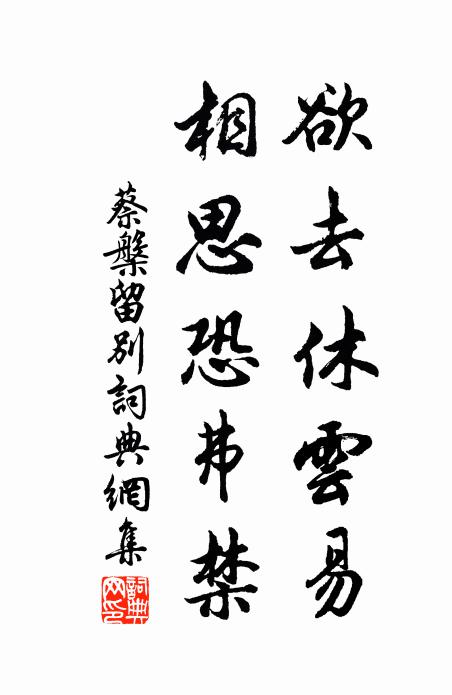 欲去休雲易
相思恐弗禁
蔡槃留別詞典網集
詞典網印